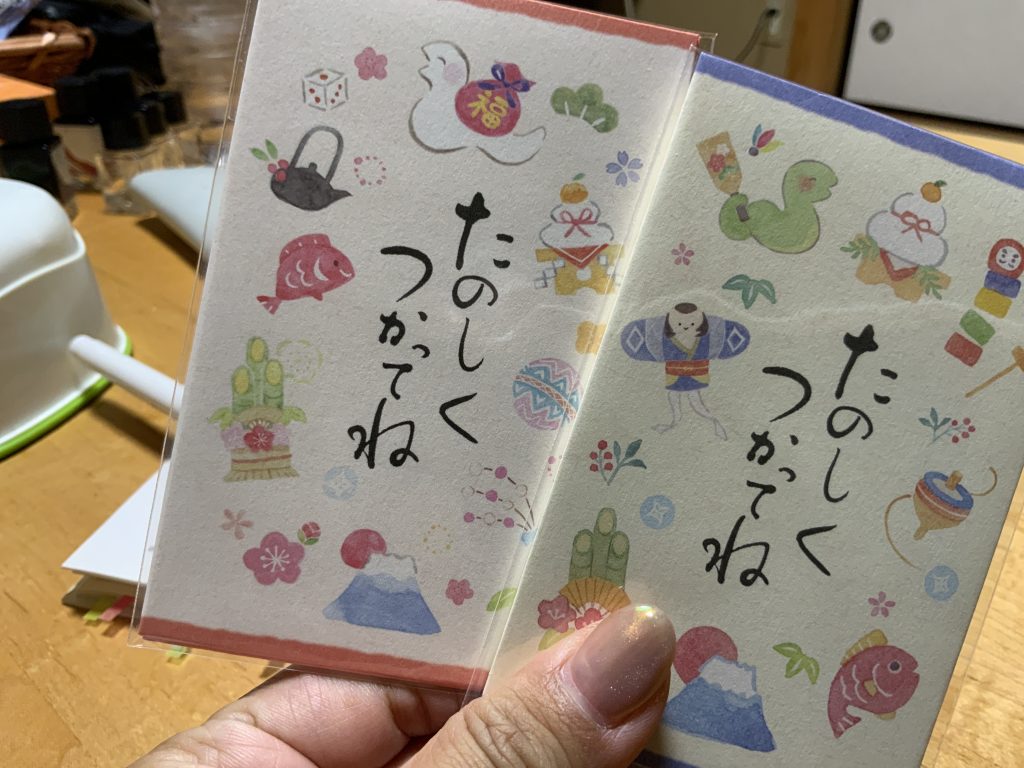 福
たのしく
つかってね
たのしく
つかってね